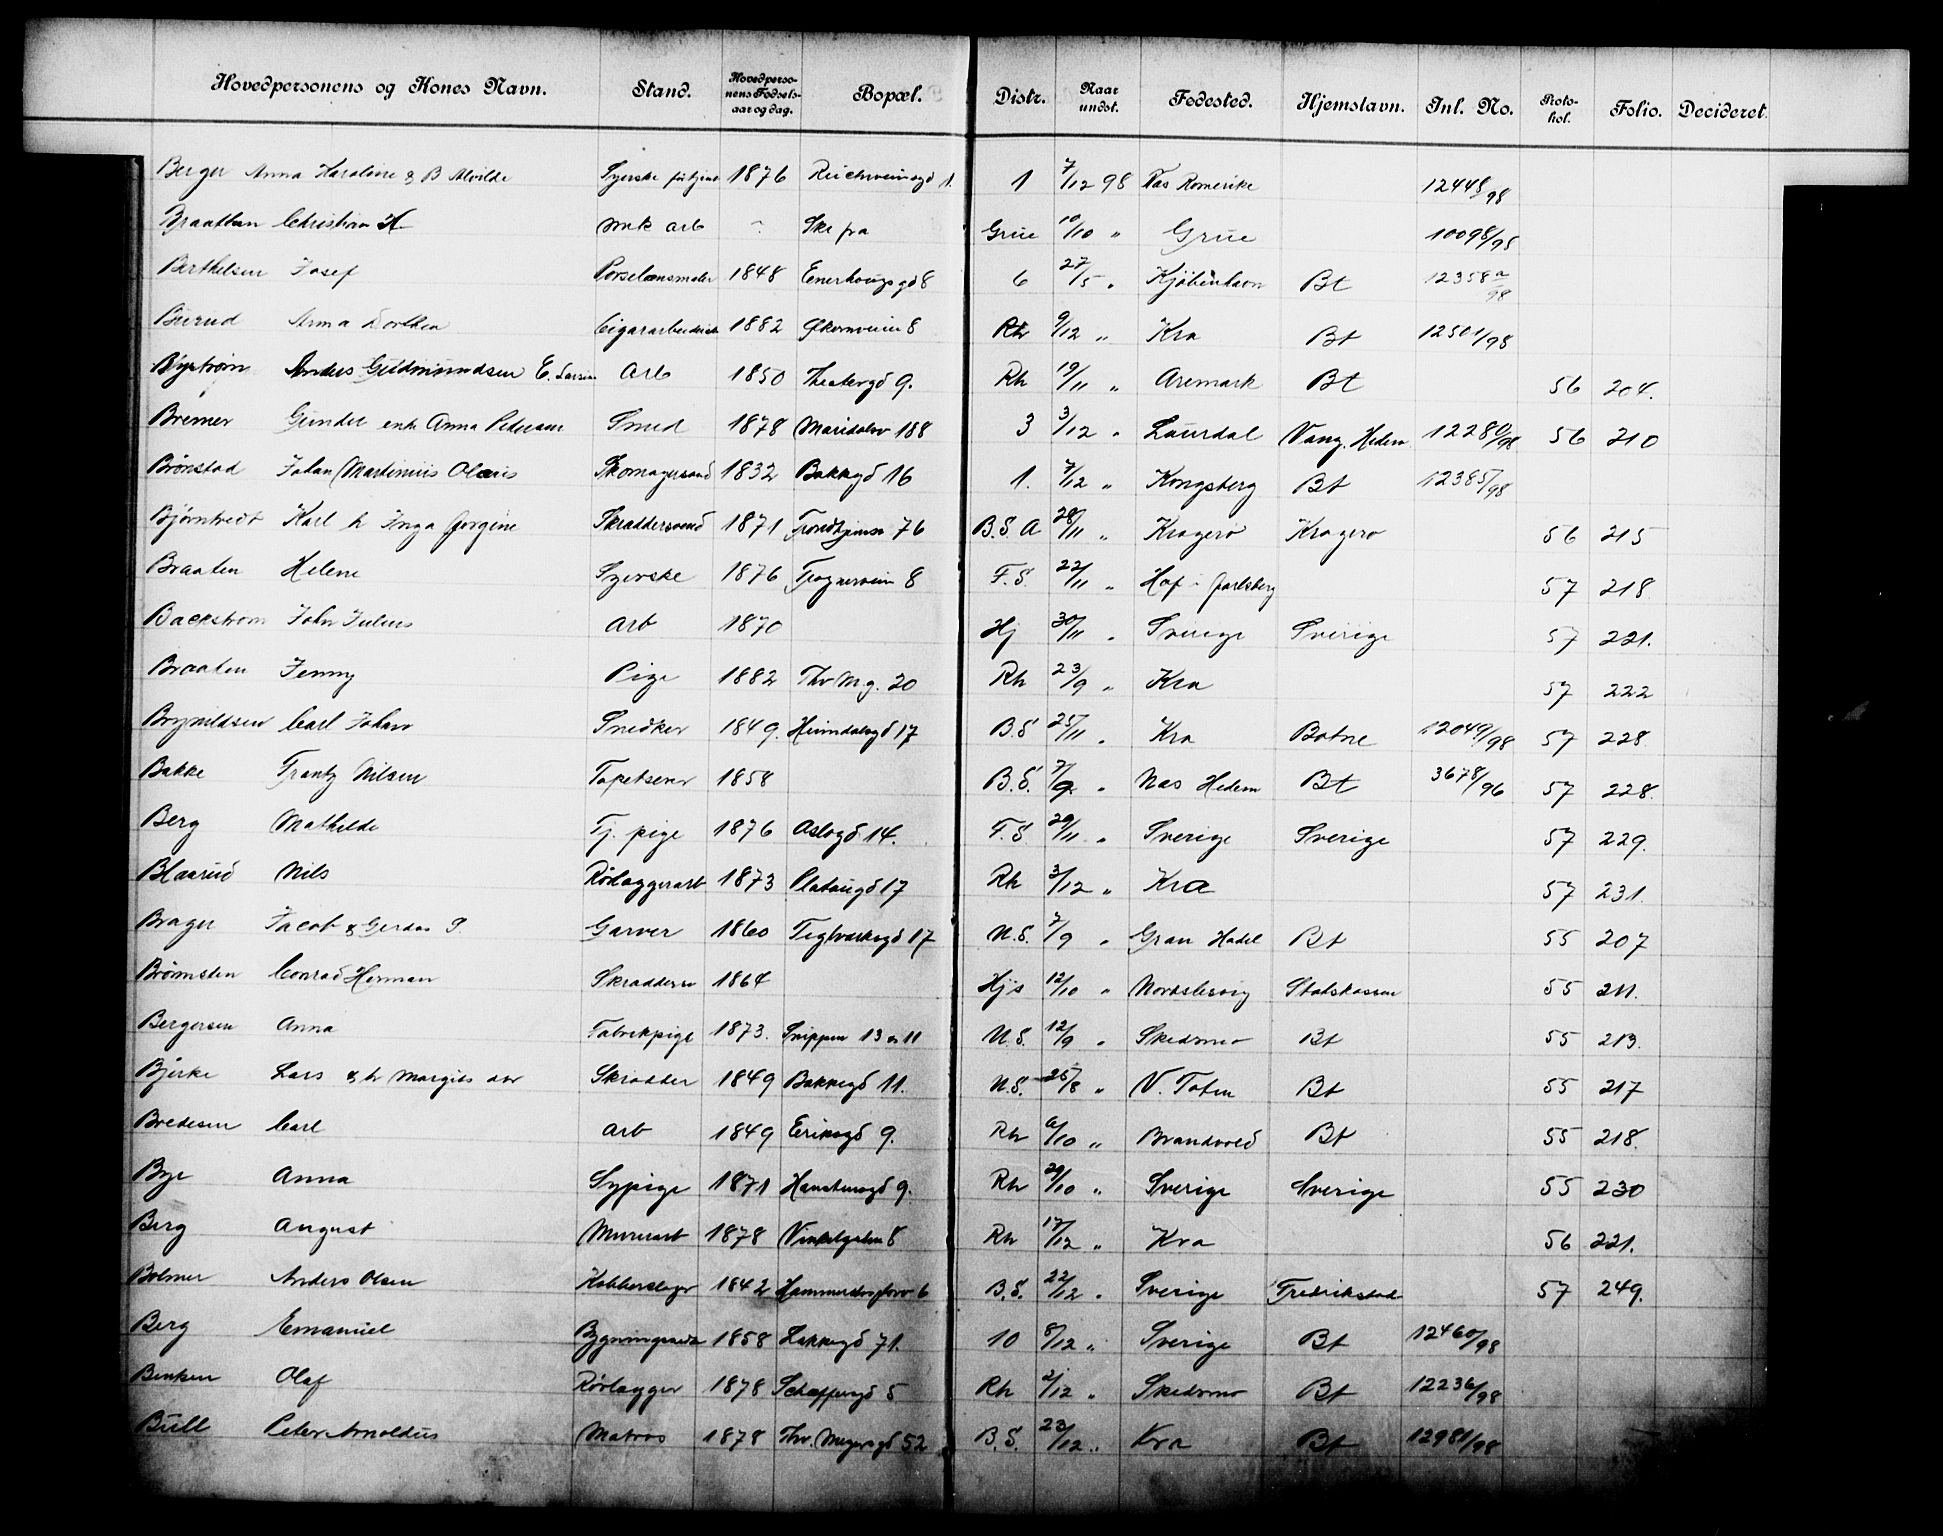 Hovedpersonens og Kones Navn. Stand. Hovedpersonens Fødselsaar og dag. Bopæl. Distr. Naar undst. Fødested. Hjemstavn. Inl. No. Protokol. Folio. Decideret.
Berger Anna Karoline & B Alvilde Syerske 1876 1. 1 7/12 98 Næs Romerike 12448/98
Braathen Christian H. mk arb " Ske fra Grue 10/10 " Grue 10098/98
Berthelsen Josef Porselænsmaler 1848 Enerhougsgd 8 6 27/5 " Kjøbenhavn Bt 12358a/98
Burud Anna Dorthea Cigararbeiderske 1882 Økernveien 8 Rh 9/12 " Kra Bt 12501/98
Bystrøm Anders Gudmundsen E. Larsen Arb 1850 Theatergd 9. Rh 19/11 " Aremark Bt 56 204.
Bremer Gunder enk Anna Pedersen Smed 1878 Maridalsv 188 3 3/12 " Laurdal Vang. Hedm. 12280/98 56 210
Brønstad Johan Martinius Olaus Skomagersvend 1832 Bakkegd 16 1. 7/12 " Kongsberg Bt 12385/98
Bjørntvedt Karl h Inga Jørgine Skræddersvend 1871 Trondhjemsv 76 B.S. A 28/11 " Kragerø Kragerø 56 215
Braaten Helene Syerske 1876 Frognerveien 8 F.S. 22/11 " Hof i Jarlsberg 57 218
Backstrøm John Julius Arb 1870 Hj 30/11 " Sverige Sverige 57 221.
Braaten Jenny Pige 1882 Thv M.g. 20 Rh 23/9 " Kra 57 222
Brynildsen Carl Johan Snedker 1849. Heimdalsgd 17 B.S 25/11 " Kra Botne 12049/98 57 228
Bakke Frantz Nilsen Tapetserer 1858 B.S. 7/9 " Næs Hedem Bt 3678/96 57 228.
Berg Mathilde Tj. pige 1876 Oslogd 14. F.S. 29/11 " Sverige Sverige 57 229.
Blaarud Nils Rørlæggerarb 1873 Platougd 17 Rh 3/12 " Kra 57 231.
Brager Jacob & Gerda P. Garver 1860 Teglverksgd 17 N.S. 7/9 " Gran Hadel Bt 55 207
Brømsten Conrad Herman Skrædder 1864 Hjs 12/10 " Nordslesvig Statskassen 55 211.
Bergersen Anna Fabrikpige 1873. Snippen 13 & 11 N.S. 12/9 " Skedsmo Bt 55 213.
Bjerke Lars & h Margits Skrædder 1849 Bakkegd 11. N.S. 25/8 " V. Toten Bt 55 217
Bredesen Carl Arb 1849 Eriksgd 9. Rh 6/10 " Brandvold Bt 55 218.
Bye Anna Sypige 1871 9. Rh 29/10 " Sverige Sverige 55 230
Berg August Murerarb 1878 Vinkelgaden 8 Rh 17/12 " Kra 56 221.
Bolmer Anders Olsen Kobberslager 1842 Hammersborgtorv 6 B.S. 22/12 " Sverige Fredrikstad 57 249.
Berg Emanuel 1858 Hakkegd 71. 10 8/12 " Sverige Bt 12460/98
Benksen Olaf Rørlægger 1878 Schæffersgd 5 Rh 2/12 " Skedsmo Bt 12236/98
Bull Peter Arnoldus Matros 1878 Thv. Meyersgd 52 B.S. 23/12 " Kra Bt 12981/98